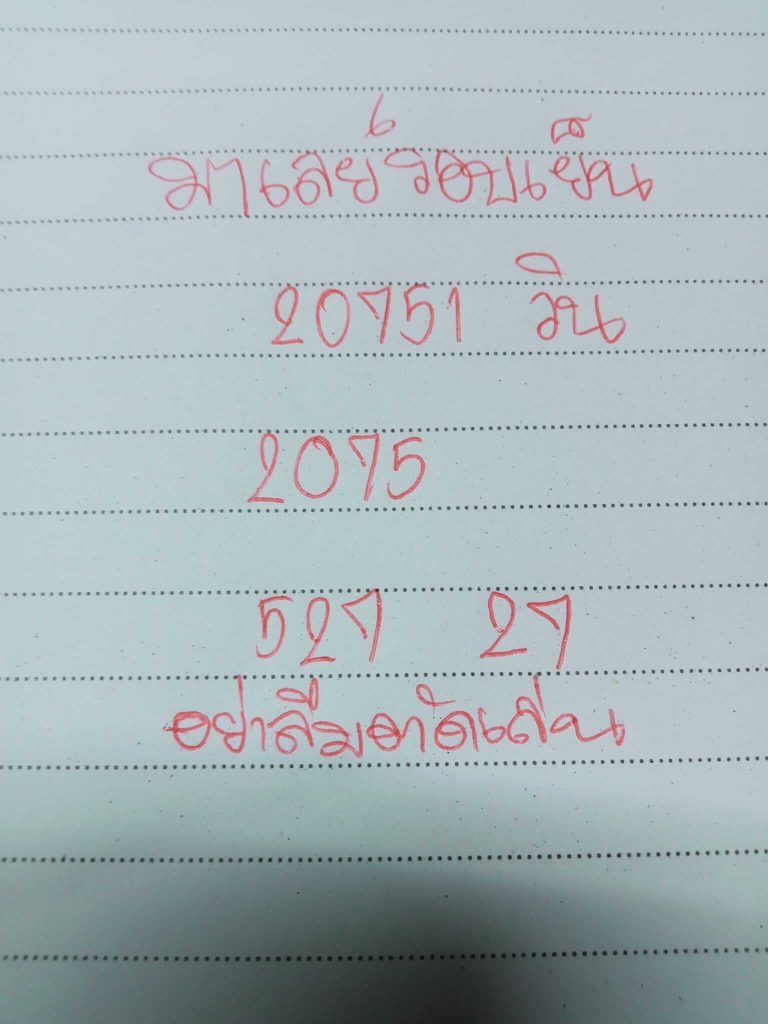 มาเลย์รอบเย็น
20751 วิน
2075
527 27
อย่าลืมอาัดเล่น